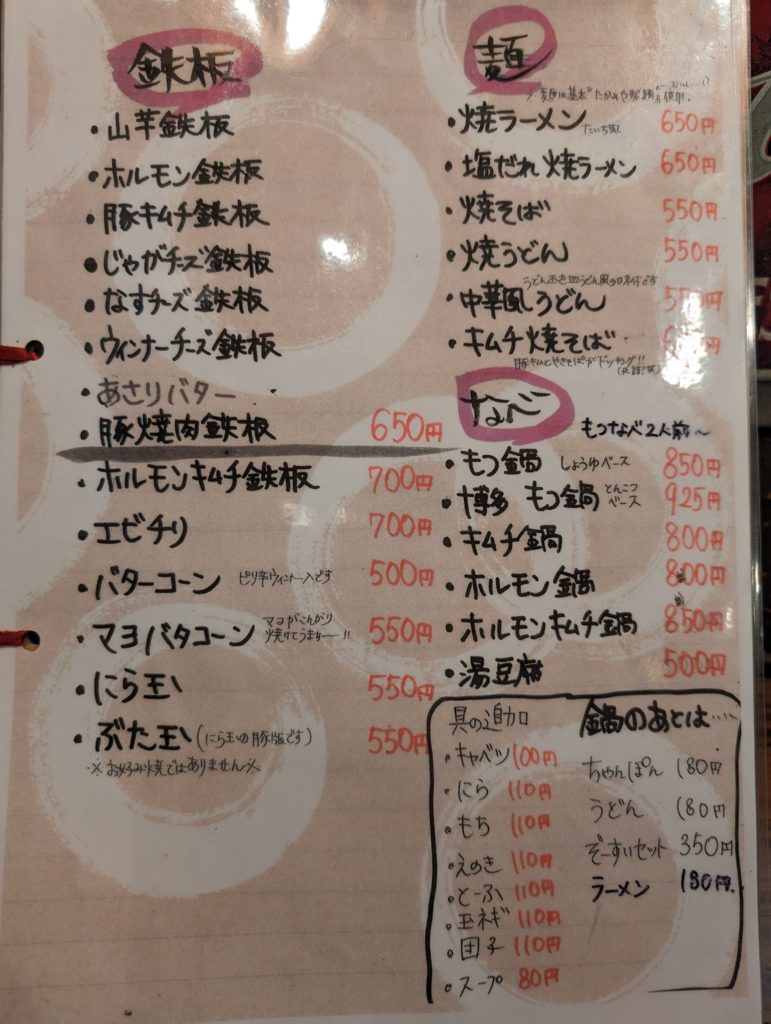 鉄板
・山芋鉄板
・ホルモン鉄板
・豚キムチ鉄板
・じゃがチーズ鉄板
・なすチーズ鉄板
・ウィンナーチーズ鉄板
・あさりバター
・豚焼肉鉄板 650円
・ホルモンキムチ鉄板 700円
・エビチリ 700円
・バターコーン ピリ辛ウィンナー入です 500円
・マヨバタコーン マヨがこんがり 焼けてうまぁー!! 550円
・にら玉 550円
・ぶた玉(にら玉の豚版です) 550円
※お好み焼ではありません※
麺
※麺は基本
・焼ラーメン 650円
・塩だれ焼ラーメン 650円
・焼そば 550円
・焼うどん 550円
・中華風うどん
・キムチ焼そば
豚キムとやきそばがドッキング!!
なべ もつなべ2人前〜
・もつ鍋 しょうゆベース 850円
・博多 もつ鍋 とんこつベース 925円
・キムチ鍋 800円
・ホルモン鍋 800円
・ホルモンキムチ鍋 850円
・湯豆腐 500円
具の追加
・キャベツ 100円
・にら 110円
・もち 110円
・えのき 110円
・とーふ 110円
・玉ネギ 110円
・団子 110円
・スープ 80円
鍋のあとは‥‥
ちゃんぽん 180円
うどん 180円
ぞーすいセット 350円
ラーメン 180円